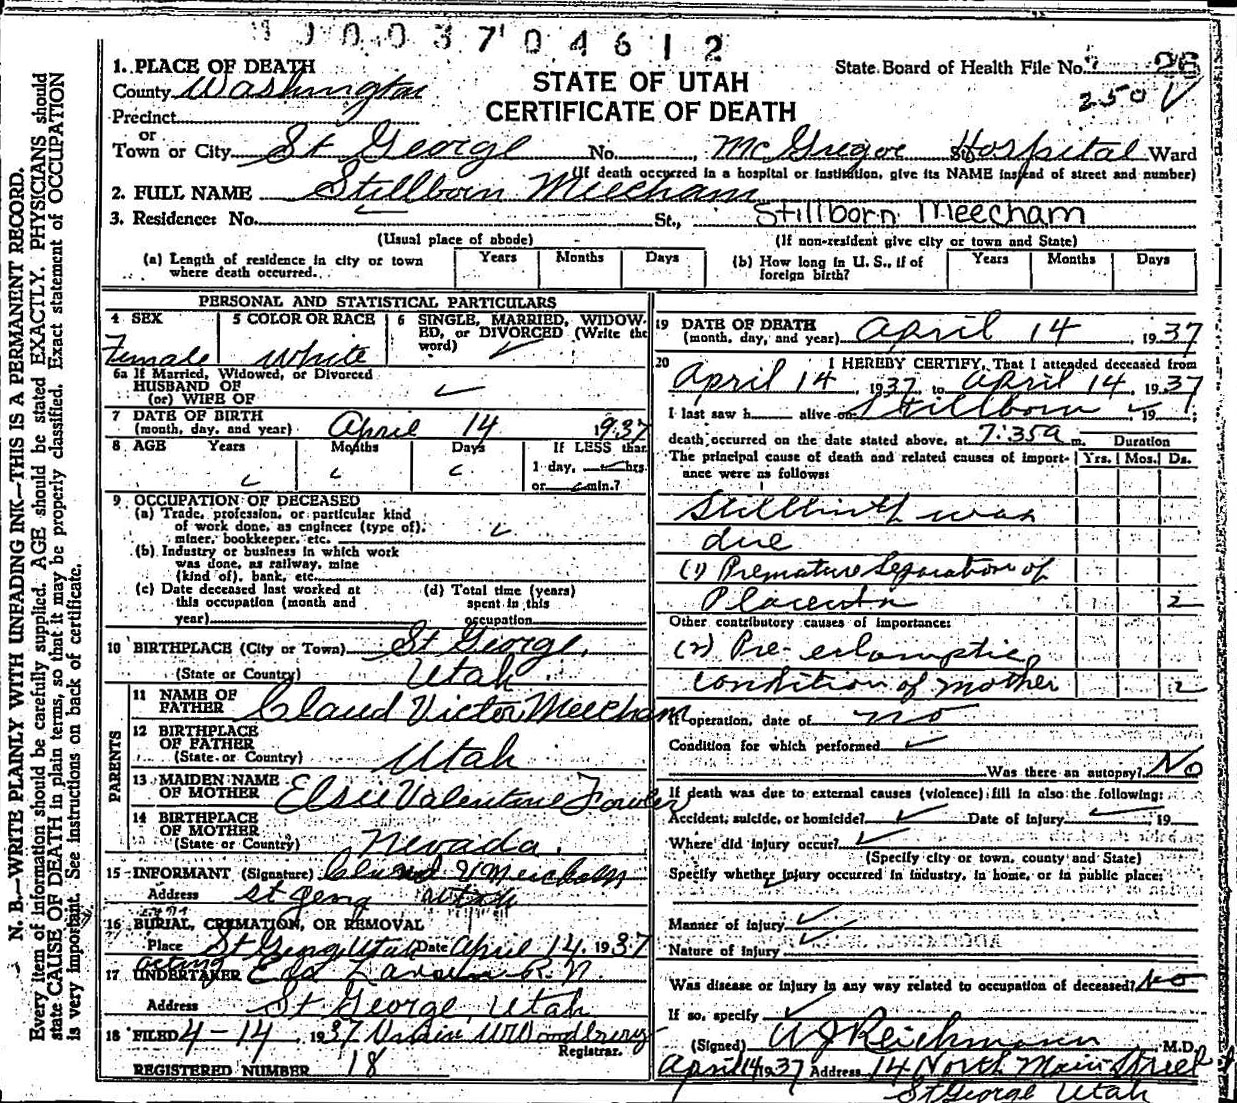 003704612
1. PLACE OF DEATH
STATE OF UTAH
CERTIFICATE OF DEATH
State Board of Health File No. 26
250
County Washington
Precinct
or
Town or City St George No. , McGregor St. Hospital Ward
(If death occurred in a hospital or institution, give its NAME instead of street and number)
2. FULL NAME Stillborn Meecham
3. Residence: No. St., Stillborn Meecham
(Usual place of abode) (If non-resident give city or town and State)
(a) Length of residence in city or town where death occurred. Years Months Days
(b) How long in U. S., if of foreign birth? Years Months Days
PERSONAL AND STATISTICAL PARTICULARS
4 SEX Female
5 COLOR OR RACE White
6 SINGLE, MARRIED, WIDOWED, or DIVORCED (Write the word)
6a If Married, Widowed, or Divorced
HUSBAND OF
(or) WIFE OF
7 DATE OF BIRTH
(month, day, and year) April 14 1937
8 AGE Years Months Days If LESS than
1 day, hrs.
or min.?
9 OCCUPATION OF DECEASED
(a) Trade, profession, or particular kind
of work done, as engineer (type of),
miner, bookkeeper, etc.
(b) Industry or business in which work
was done, as railway, mine
(kind of), bank, etc.
(c) Date deceased last worked at
this occupation (month and
year)
(d) Total time (years)
spent in this
occupation
10 BIRTHPLACE (City or Town) St George,
(State or Country) Utah
PARENTS
11 NAME OF
FATHER Claud Victor Meecham
12 BIRTHPLACE
OF FATHER
(State or Country) Utah
13 MAIDEN NAME
OF MOTHER Elsie Valentine Fowler
14 BIRTHPLACE
OF MOTHER
(State or Country) Nevada.
15 INFORMANT (Signature) Claud V Meecham
Address St Georg Utah
16 BURIAL, CREMATION, OR REMOVAL
Place St Georg, Utah Date April 14, 1937
acting
17 UNDERTAKER R. N
Address St George, Utah
18 FILED 4-14, 1937
Registrar.
REGISTERED NUMBER 18
19 DATE OF DEATH
(month, day, and year) April 14 , 1937
20 I HEREBY CERTIFY, That I attended deceased from
April 14, 1937 to April 14, 1937
I last saw h alive on Stillborn 19 ;
death occurred on the date stated above, at 7:35a m.
Duration
The principal cause of death and related causes of importance were as follows: Yrs. Mos. Ds.
Stillbirth was
due
(1) Premature Separation of
Placenta 2
Other contributory causes of importance:
(2) Pre-eclamptic
condition of mother 2
If operation, date of no
Condition for which performed
Was there an autopsy? No
If death was due to external causes (violence) fill in also the following:
Accident, suicide, or homicide? Date of injury 19
Where did injury occur?
(Specify city or town, county and State)
Specify whether injury occurred in industry, in home, or in public place:
Manner of injury
Nature of injury
Was disease or injury in any way related to occupation of deceased? No
If so, specify
(Signed) A J Reichmann, M.D.
April 14 1937 Address 14 North Main Street
St George Utah
N. B.—WRITE PLAINLY WITH UNFADING INK—THIS IS A PERMANENT RECORD.
Every item of information should be carefully supplied. AGE should be stated EXACTLY. PHYSICIANS should
state CAUSE OF DEATH in plain terms, so that it may be properly classified. Exact statement of OCCUPATION
is very important. See instructions on back of certificate.